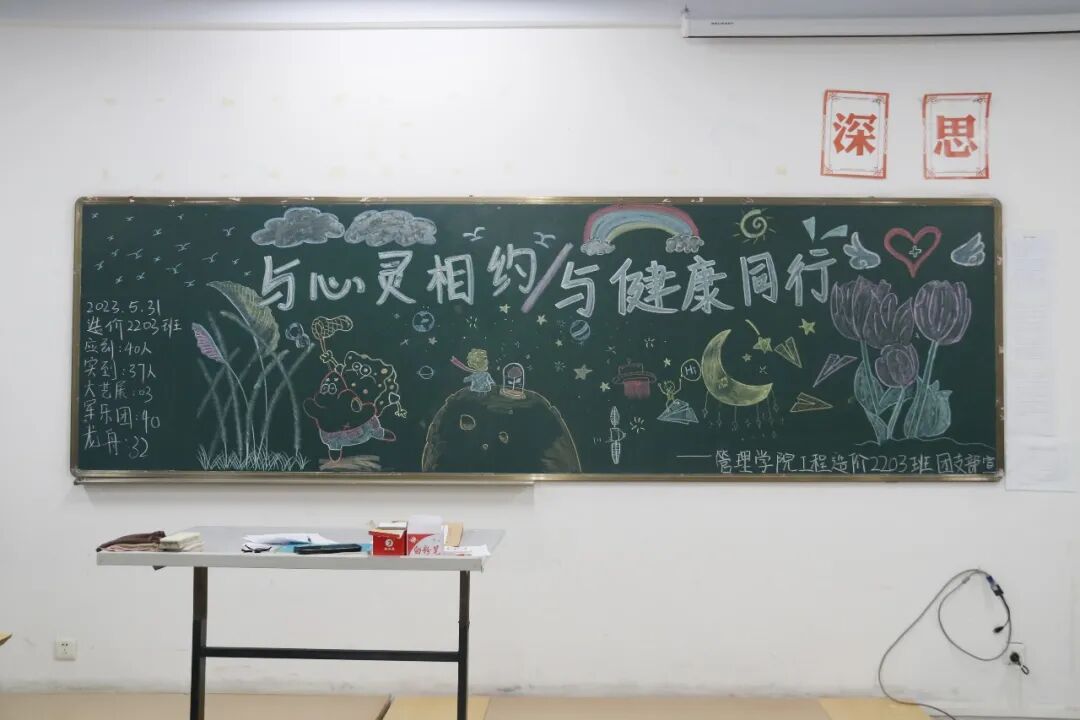 深 思
与心灵相约/与健康同行
2023.5.31
造价2203班
应到:40人
实到:37人
大艺展:03
军乐团:40
龙舟:32
Hi
——管理学院工程造价2203班团支部宣
白粉笔